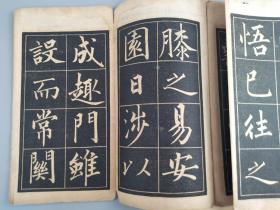 悟已往之
膝之易安
園日涉以
成趣門雖
設而常關